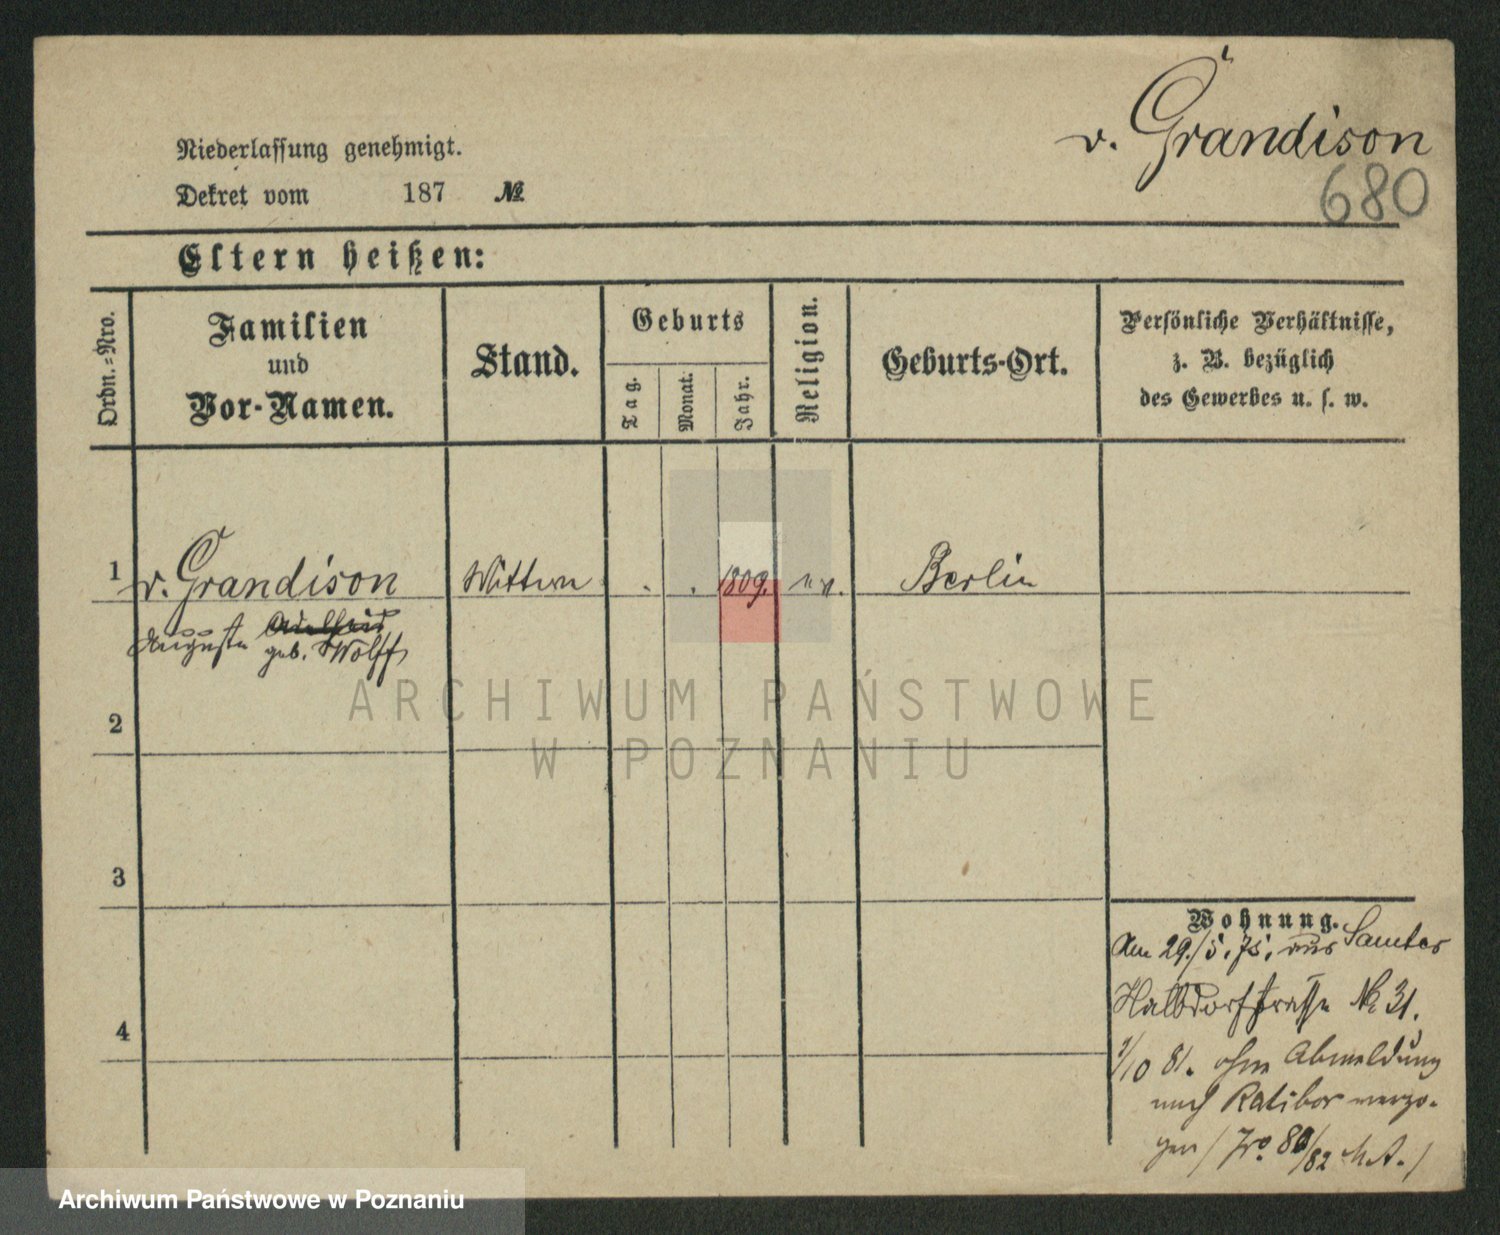 v. Grandison
680
Niederlassung genehmigt.
Dekret vom 187 №
Eltern heißen:
Ordn.-Nro.
Familien
und
Vor-Namen.
Stand.
Geburts
Tag.
Monat.
Jahr.
Religion.
Geburts-Ort.
Persönliche Verhältnisse,
z. B. bezüglich
des Gewerbes u. s. w.
1 v. Grandison Wittwe . . 1809. ev. Berlin
Auguste
geb. Wolff
2
3
4
Wohnung.
Am 29./5.75. aus Samter
Halbdorfstrasse № 31.
1/10 81. ohne Abmeldung
nach Ratibor verzo-
gen
ARCHIWUM PAŃSTWOWE
W POZNANIU
Archiwum Państwowe w Poznaniu